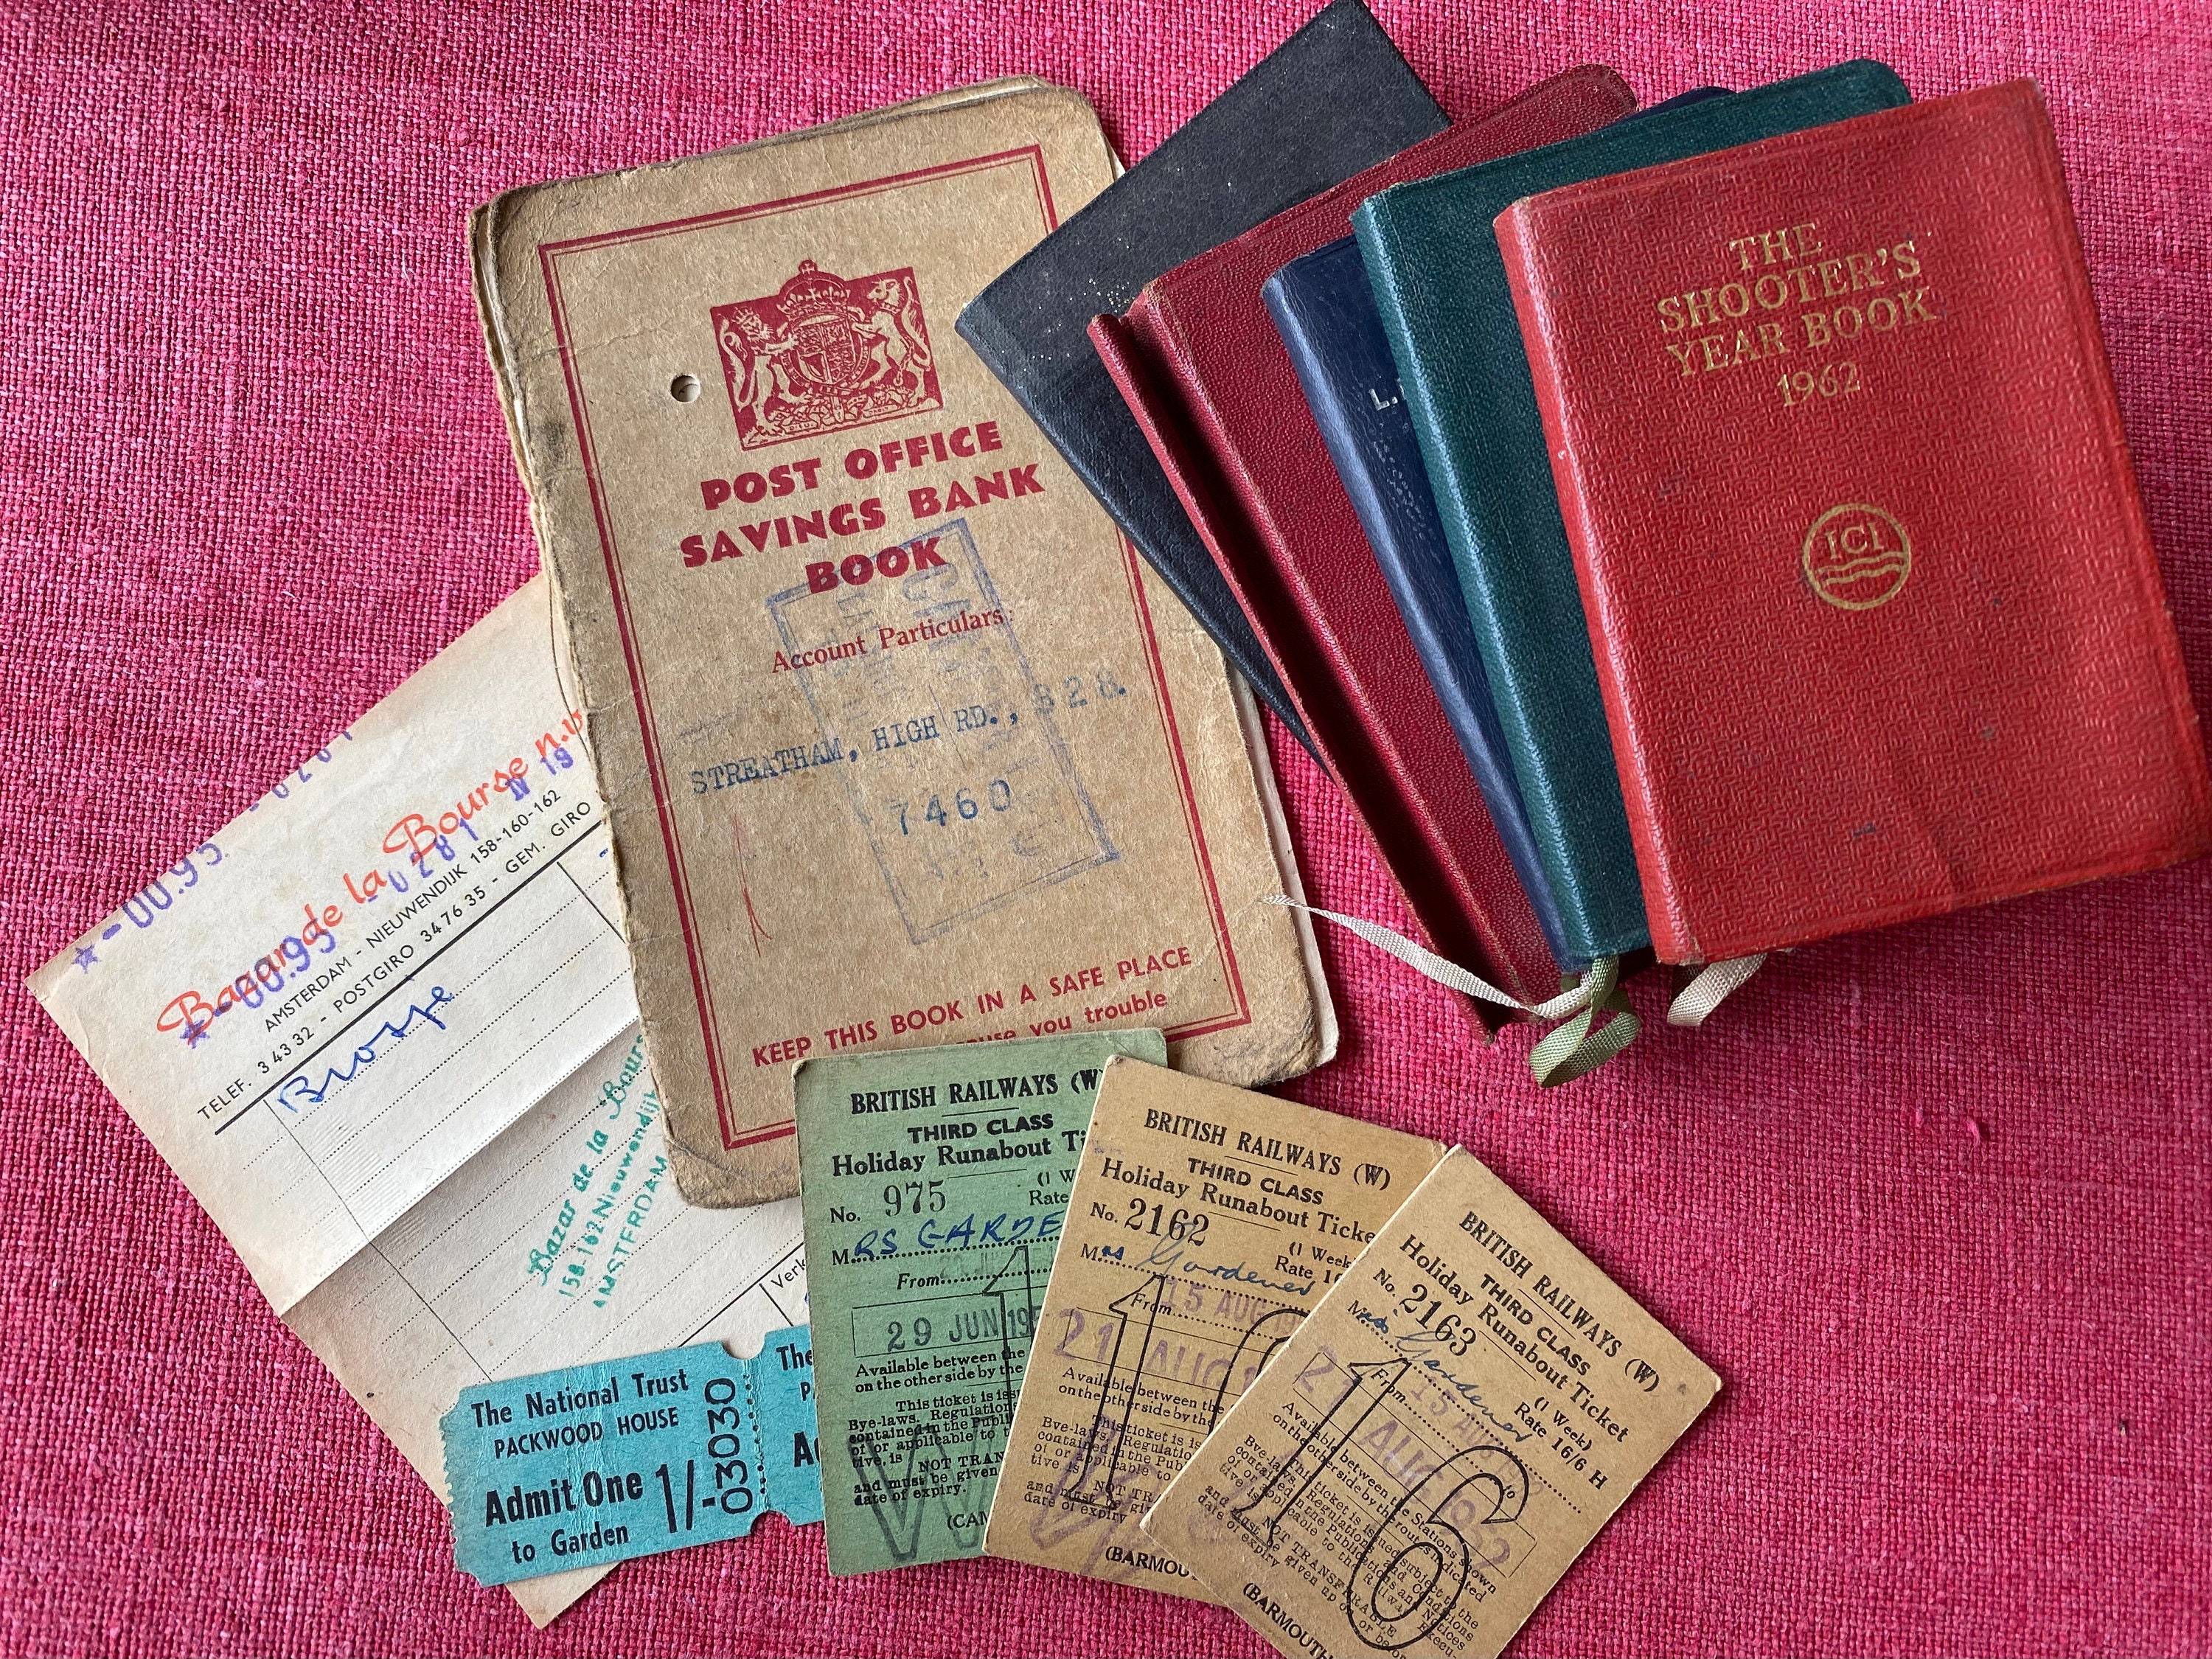 POST OFFICE
SAVINGS BANK
BOOK
Account Particulars:
STREATHAM, HIGH RD., 828.
7460
KEEP THIS BOOK IN A SAFE PLACE
you trouble
L.
THE
SHOOTER'S
YEAR BOOK
1962
ICI
-00.95
Bazar de la Bourse n.v.
-00.95
0281
N 19
AMSTERDAM - NIEUWENDIJK 158-160-162
TELEF. 34332 - POSTGIRO 347635 - GEM. GIRO
Bazar de la Bourse
158-162 Nieuwendijk
AMSTERDAM
Verk
The National Trust
PACKWOOD HOUSE
Admit One 1/-
to Garden
03030
The
BRITISH RAILWAYS (W)
THIRD CLASS
Holiday Runabout Ti
No. 975
(1 W
Rate
MRS GARDE
From
29 JUN 195
Available between the
on the other side by the
This ticket is iss
Bye-laws, Regulations
contained in the Publi
of or applicable to t
tive, is
NOT TRAN
and must be given
date of expiry.
(CAM
BRITISH RAILWAYS (W)
THIRD CLASS
Holiday Runabout Ticke
No. 2162
(1 Week
Rate 16
Mrs Gardener
From
15 AUG
21 AUG
Available between the
on the other side by the
This ticket is is
Bye-laws, Regulation
contained in the Pub
of or applicable to
tive is
NOT TR
and must be giv
date of expiry
(BARMOU
BRITISH RAILWAYS (W)
THIRD CLASS
Holiday Runabout Ticket
No. 2163
(1 Week)
Rate 16/6 H
Miss Gardener
From
15 AUG
to
21 AUG 1952
Available between the Stations shown
on the other side by the routes indicated
This ticket is issued subject to the
Bye-laws, Regulations and Conditions
contained in the Publications and Notices
of or applicable to the Railway Execu-
tive is
NOT TRANSFERABLE
and must be given up on or before
date of expiry
(BARMOUTH
16